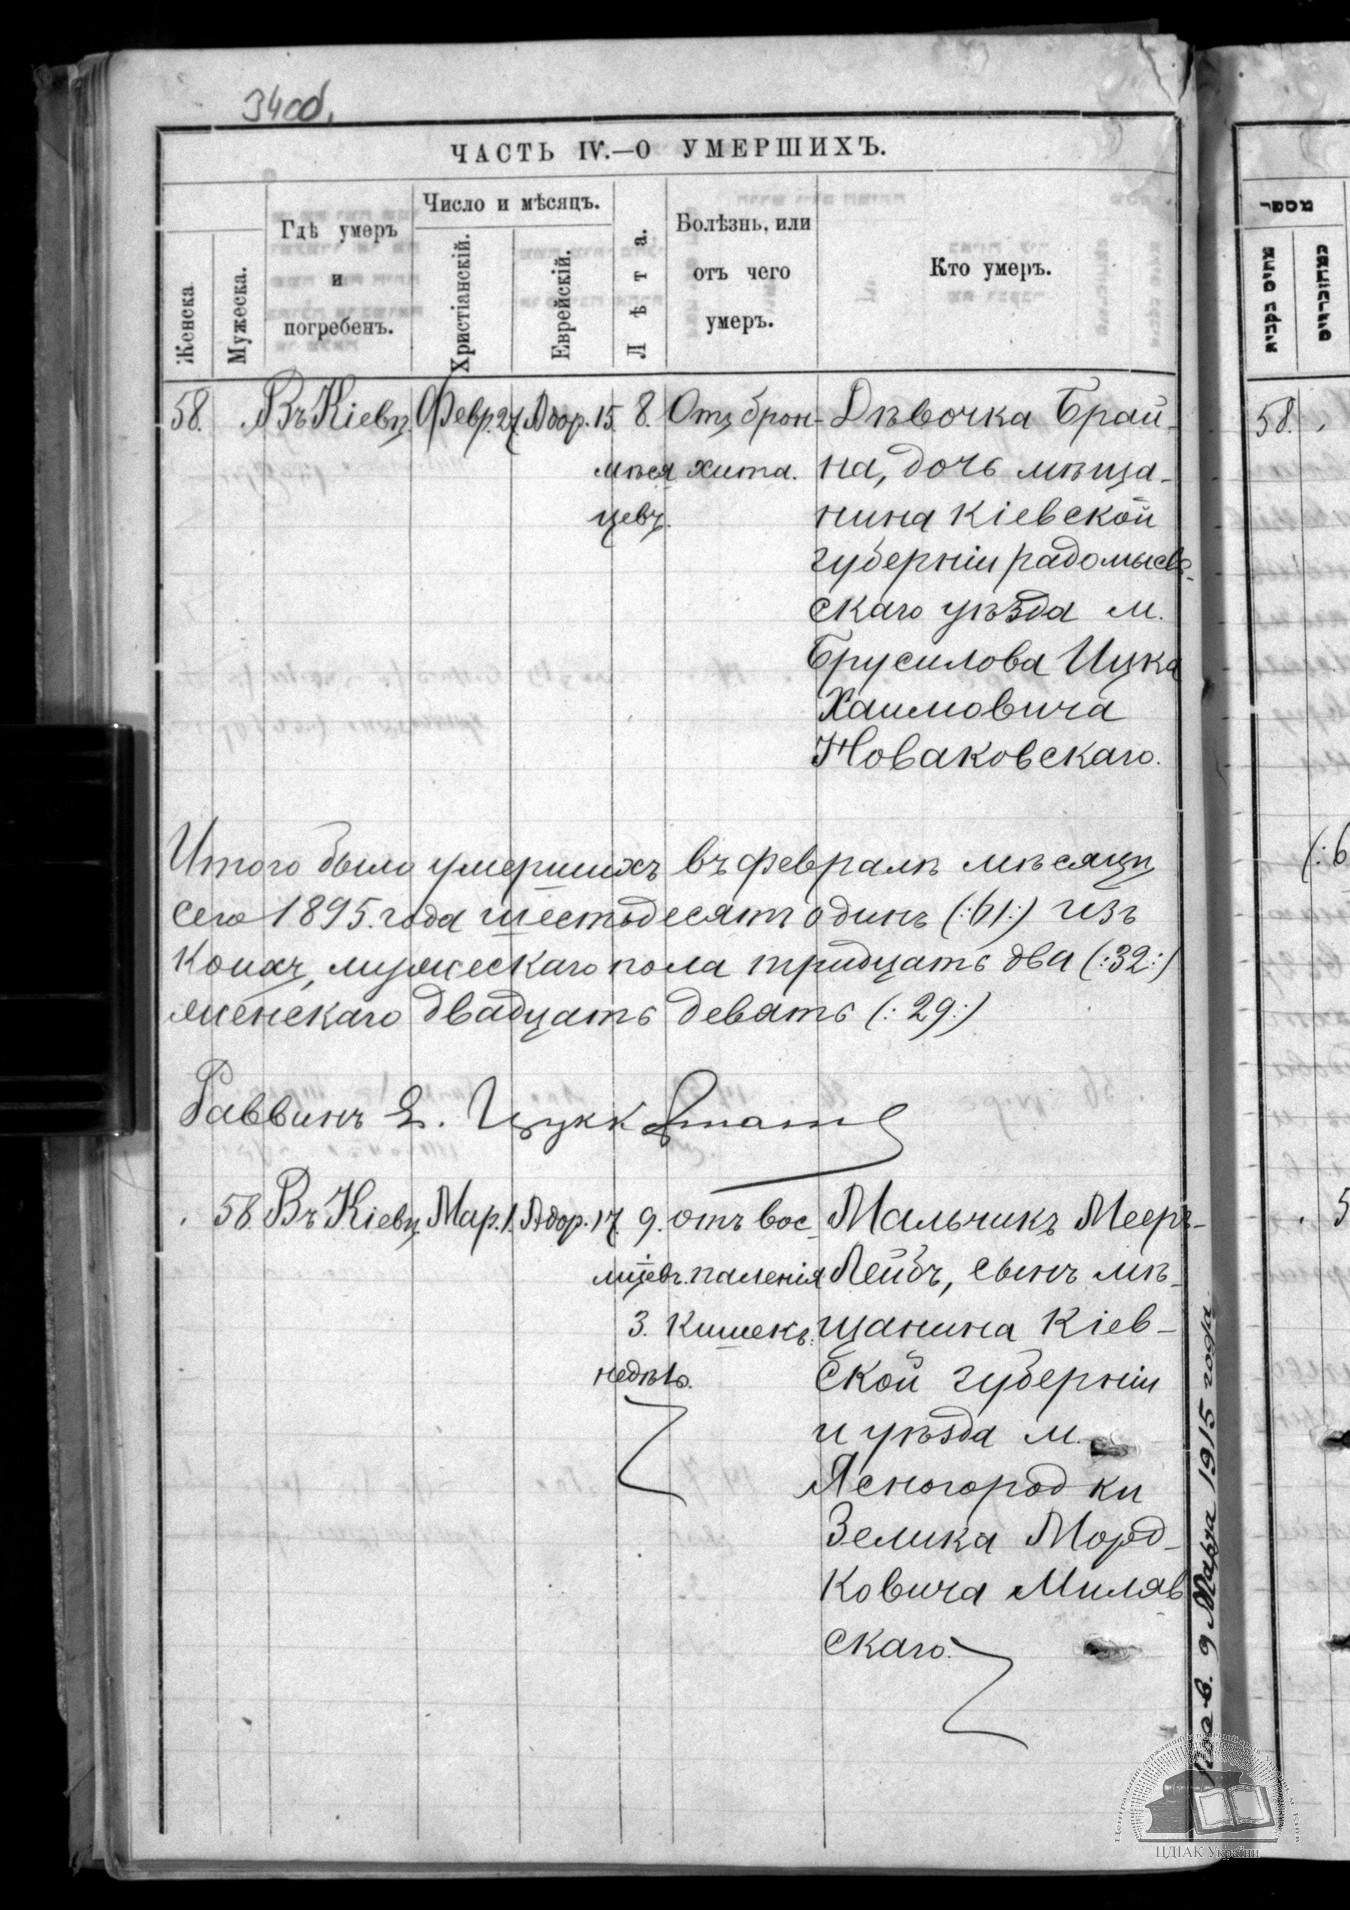 34об.
ЧАСТЬ IV.—О УМЕРШИХЪ.
Женска
Мужеска.
Гдѣ умеръ
и
погребенъ.
Число и мѣсяцъ.
Христіанскій.
Еврейскій.
Лѣта.
Болѣзнь, или
отъ чего
умеръ.
Кто умеръ.
58. Въ Кіевѣ. Февр. 27. Адор. 15. 8. Отъ брон- Дѣвочка Брай-
мѣся хита. на, дочь мѣща-
цевъ. нина Кіевской
губерніи радомысь-
скаго уѣзда м.
Брусилова Ицка
Хаимовича
Новаковскаго.
Итого было умершихъ въ февралѣ мѣсяцѣ
сего 1895. года шестьдесятъ одинъ (:61:) изъ
коихъ, мужескаго пола тридцать два (:32:)
женскаго двадцать девять (:29:)
Раввинъ Е. Цуккерманъ
58 Въ Кіевѣ. Мар. 1. Адор. 17. 9. отъ вос- Мальчикъ Мееръ-
мцевъ. паленія Лейбъ, сынъ мѣ-
3. кишекъ. щанина Кіев-
недѣль. ской губерніи
и уѣзда м.
Ясногородки
Зелика Морд-
ковича Миляв
скаго.
9 Марта 1915 года
מספר
58.
ЦДІАК України